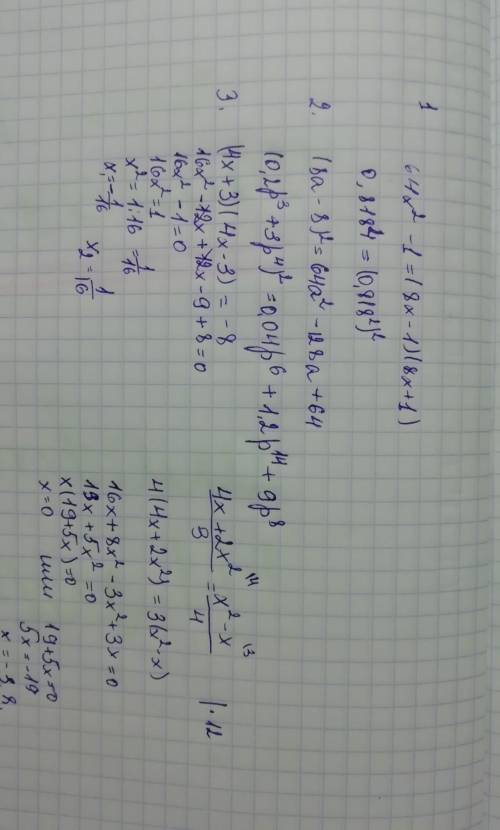 1 64x² - 1 = (8x - 1)(8x + 1)
0,818⁴ = (0,818²)²
2. (8a - 8)² = 64a² - 128a + 64
(0,2p³ + 3p⁴)² = 0,04p⁶ + 1,2p¹⁴ + 9p⁸
3. (4x + 3)(4x - 3) = -8
16x² - 12x + 12x - 9 + 8 = 0
16x² - 1 = 0
16x² = 1
x² = 1:16 1/16
x₁ = -1/16 x₂ = 1/16
(4x + 2x²)/3 \⁴ = (x² - x)/4 \³ | · 12
4(4x + 2x²) = 3(x² - x)
16x + 8x² - 3x² + 3x = 0
19x + 5x² = 0
x(19 + 5x) = 0
x = 0 или 19 + 5x = 0
5x = -19
x = -3,8